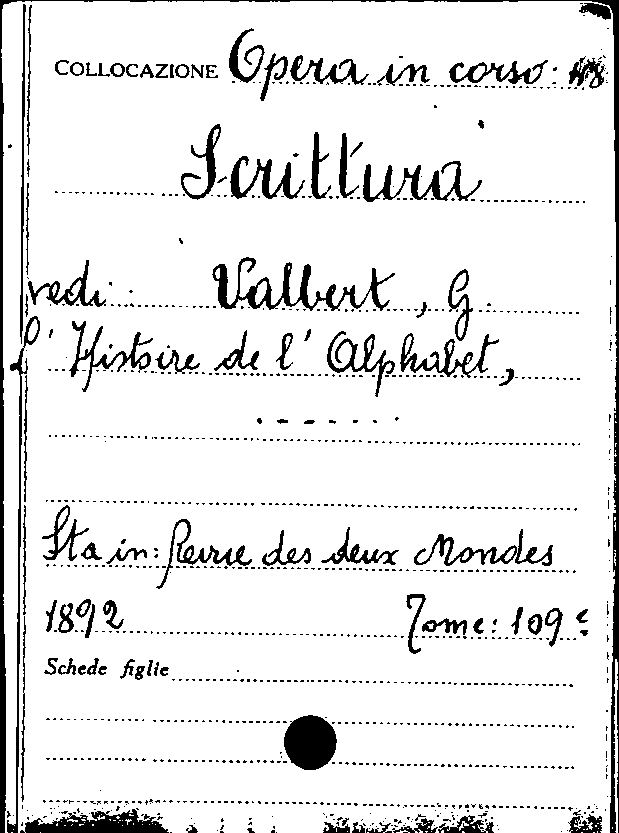 COLLOCAZIONE Opera in corso: 118
Scrittura
vedi: Valbert, G.
L' Histoire de l' Alphabet,
.......
Sta in: Revue des deux Mondes
1892 Tome: 109e
Schede figlie